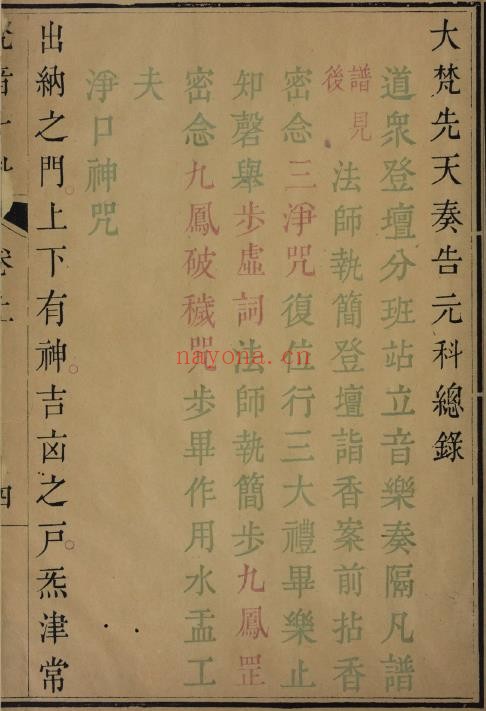 大梵先天奏告元科總錄
道衆登壇分班站立音樂奏隔凡譜
譜見
後
法師執簡登壇詣香案前拈香
密念三淨咒復位行三大禮畢樂止
知磬舉步虛詞法師執簡步九鳳罡
密念九鳳破穢咒步畢作用水盂工
夫
淨口神咒
出納之門。上下有神。吉凶之戶。炁津常
四
nayona.cn